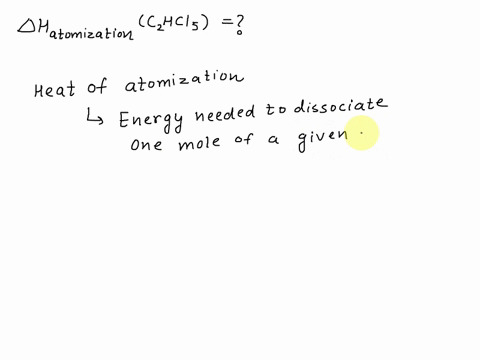 ΔH atomization (C2HCl5) = ?
Heat of atomization
↳ Energy needed to dissociate
one mole of a given